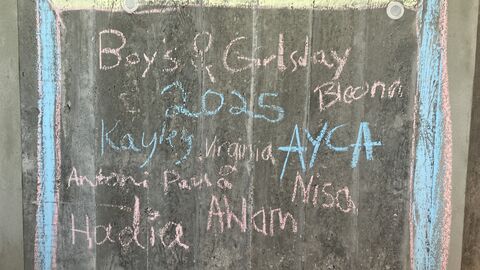 Boy's & Girlsday
2025
Bleona
Kayley Virginia AYCA
Antoni Paula Nisa
Hadia Allam